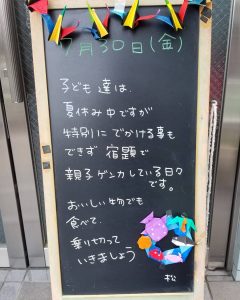 7月30日(金)
子ども達は
夏休み中ですが
特別にでかける事も
できず 宿題で
親子ゲンカしている日々
です。
おいしい物でも
食べて、
乗り切って
いきましょう
松